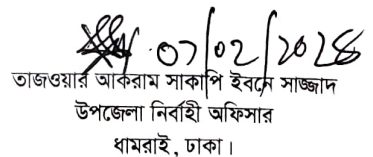 07/02/2028
তাজওয়ার আকরাম সাকাপি ইবনে সাজ্জাদ
উপজেলা নির্বাহী অফিসার
ধামরাই, ঢাকা।